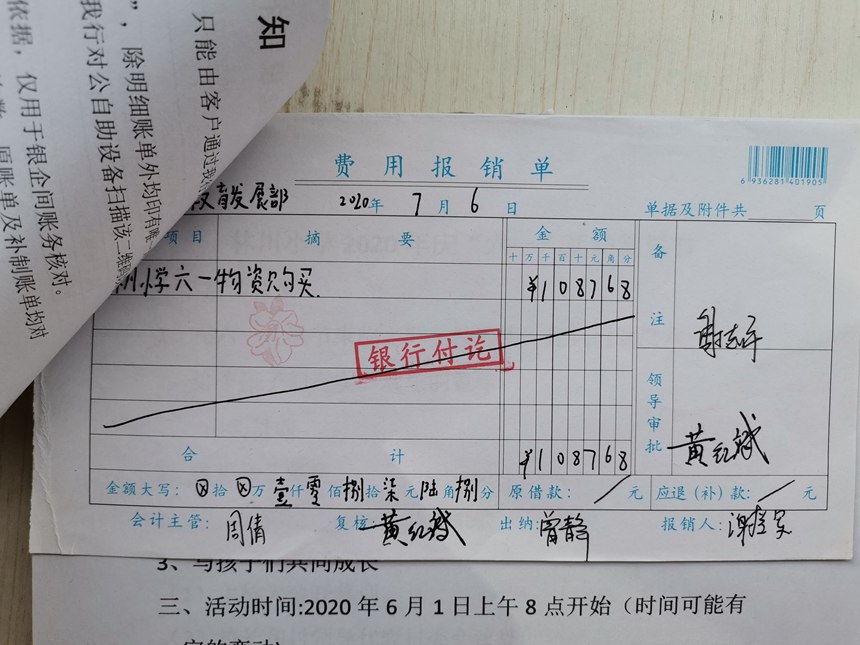 知
只能由客户通过我
”，除明细账单外均印有唯
我行对公自助设备扫描该二维码
依据，仅用于银企间账务核对。
原账单及补制账单均对
费用报销单
6 936281 401905
教育发展部 2020年 7月 6日 单据及附件共 页
项目 摘要 金额 备注
十万千百十元角分
小学六一物资购买 ¥108768
谢志平
银行付讫
领导审批 黄红斌
合计 ¥108768
金额大写：⊗拾⊗万壹仟零佰捌拾柒元陆角捌分 原借款： 元 应退（补）款： 元
会计主管: 周倩 复核: 黄红斌 出纳: 曾静 报销人:
3、与孩子们共同成长
三、活动时间:2020 年 6 月 1 日上午 8 点开始（时间可能有